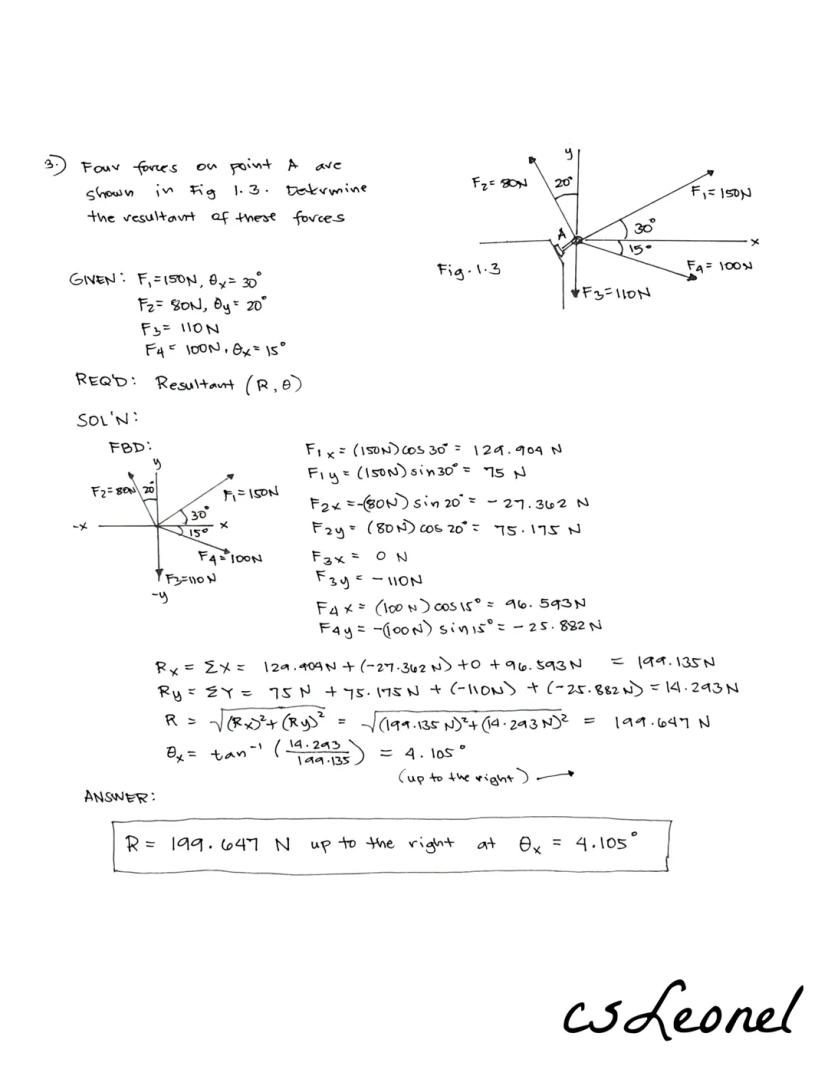 3.) Four forces on point A are
shown in Fig 1.3. Determine
the resultant of these forces
y
F₂= 80N
20°
F₁= 150N
A
30°
x
15°
Fig. 1.3
F4= 100N
F3=110N
GIVEN: F₁=150N, θx= 30°
F₂= 80N, θy= 20°
F3= 110N
F4= 100N, θx= 15°
REQ'D: Resultant (R, θ)
SOL'N:
FBD:
y
F₂=80N
20°
F₁=150N
30°
-x
x
15°
F4=100N
F3=110N
-y
F1x = (150N) cos 30° = 129.904 N
F1y = (150N) sin 30° = 75 N
F2x = -(80N) sin 20° = -27.362 N
F2y = (80N) cos 20° = 75.175 N
F3x = 0 N
F3y = -110N
F4x = (100N) cos 15° = 96.593N
F4y = -(100N) sin 15° = -25.882N
Rx = ΣX = 129.904N + (-27.362N) + 0 + 96.593N = 199.135N
Ry = ΣY = 75N + 75.175N + (-110N) + (-25.882N) = 14.293N
R = √(Rx)²+(Ry)² = √(199.135N)²+(14.293N)² = 199.647 N
θx = tan⁻¹ (14.293/199.135) = 4.105°
(up to the right) →
ANSWER:
R = 199.647 N up to the right at θx = 4.105°
csLeonel